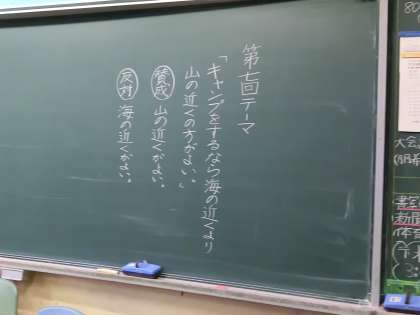 第七回テーマ
「キャンプをするなら海の近くより
山の近くの方がよい。」
賛成 山の近くがよい。
反対 海の近くがよい。
80
大会